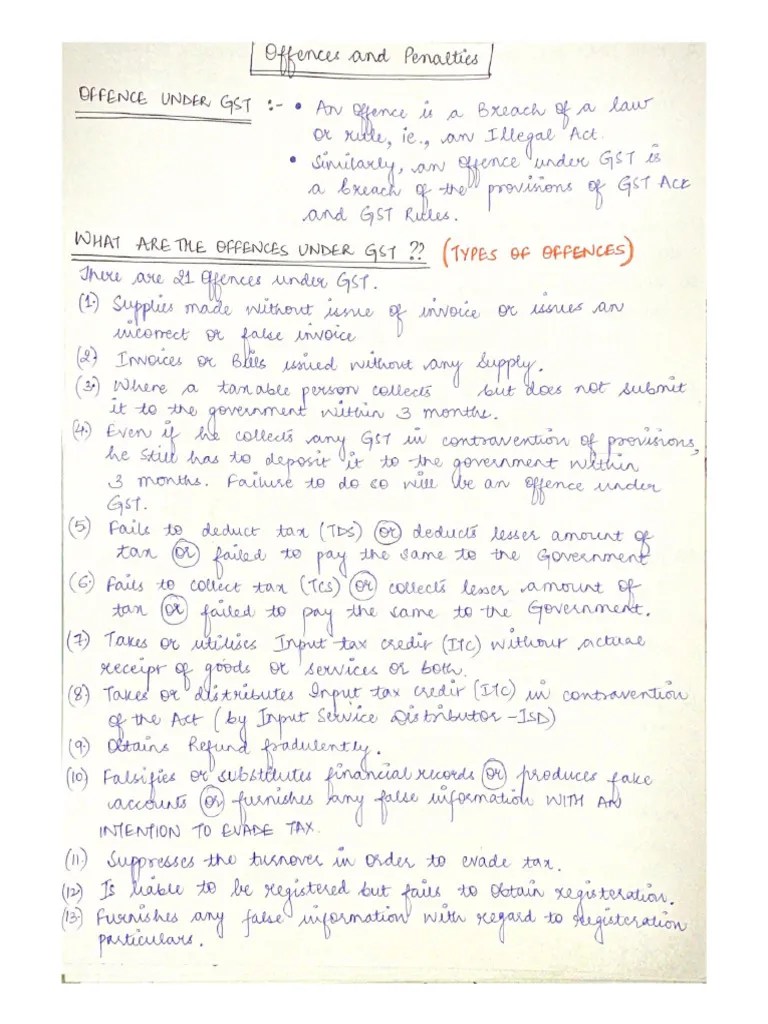 Offences and Penalties
OFFENCE UNDER GST :- • An offence is a Breach of a law
or rule, ie., an Illegal Act.
• Similarly, an offence under GST is
a breach of the provisions of GST Act
and GST Rules.
WHAT ARE THE OFFENCES UNDER GST ?? (TYPES OF OFFENCES)
There are 21 Offences under GST.
(1.) Supplies made without issue of invoice or issues an
incorrect or false invoice
(2) Invoices or Bills issued without any Supply.
(3.) Where a taxable person collects but does not submit
it to the government within 3 months.
(4.) Even if he collects any GST in contravention of provisions,
he still has to deposit it to the government within
3 months. Failure to do so will be an offence under
GST.
(5) Fails to deduct tax (TDS) or deducts lesser amount of
tax or failed to pay the same to the Government
(6.) Fails to collect tax (TCS) or collects lesser amount of
tax or failed to pay the same to the Government.
(7) Takes or utilises Input tax credit (ITC) without actual
receipt of goods or services or both.
(8) Takes or distributes Input tax credit (ITC) in contravention
of the Act (by Input Service Distributor -ISD)
(9.) Obtains Refund fradulently.
(10) Falsifies or substitutes financial records or produces fake
accounts or furnishes any false information WITH AN
INTENTION TO EVADE TAX.
(11.) Suppresses the turnover in order to evade tax.
(12) Is liable to be registered but fails to obtain registeration.
(13.) Furnishes any false information with regard to registeration
particulars.